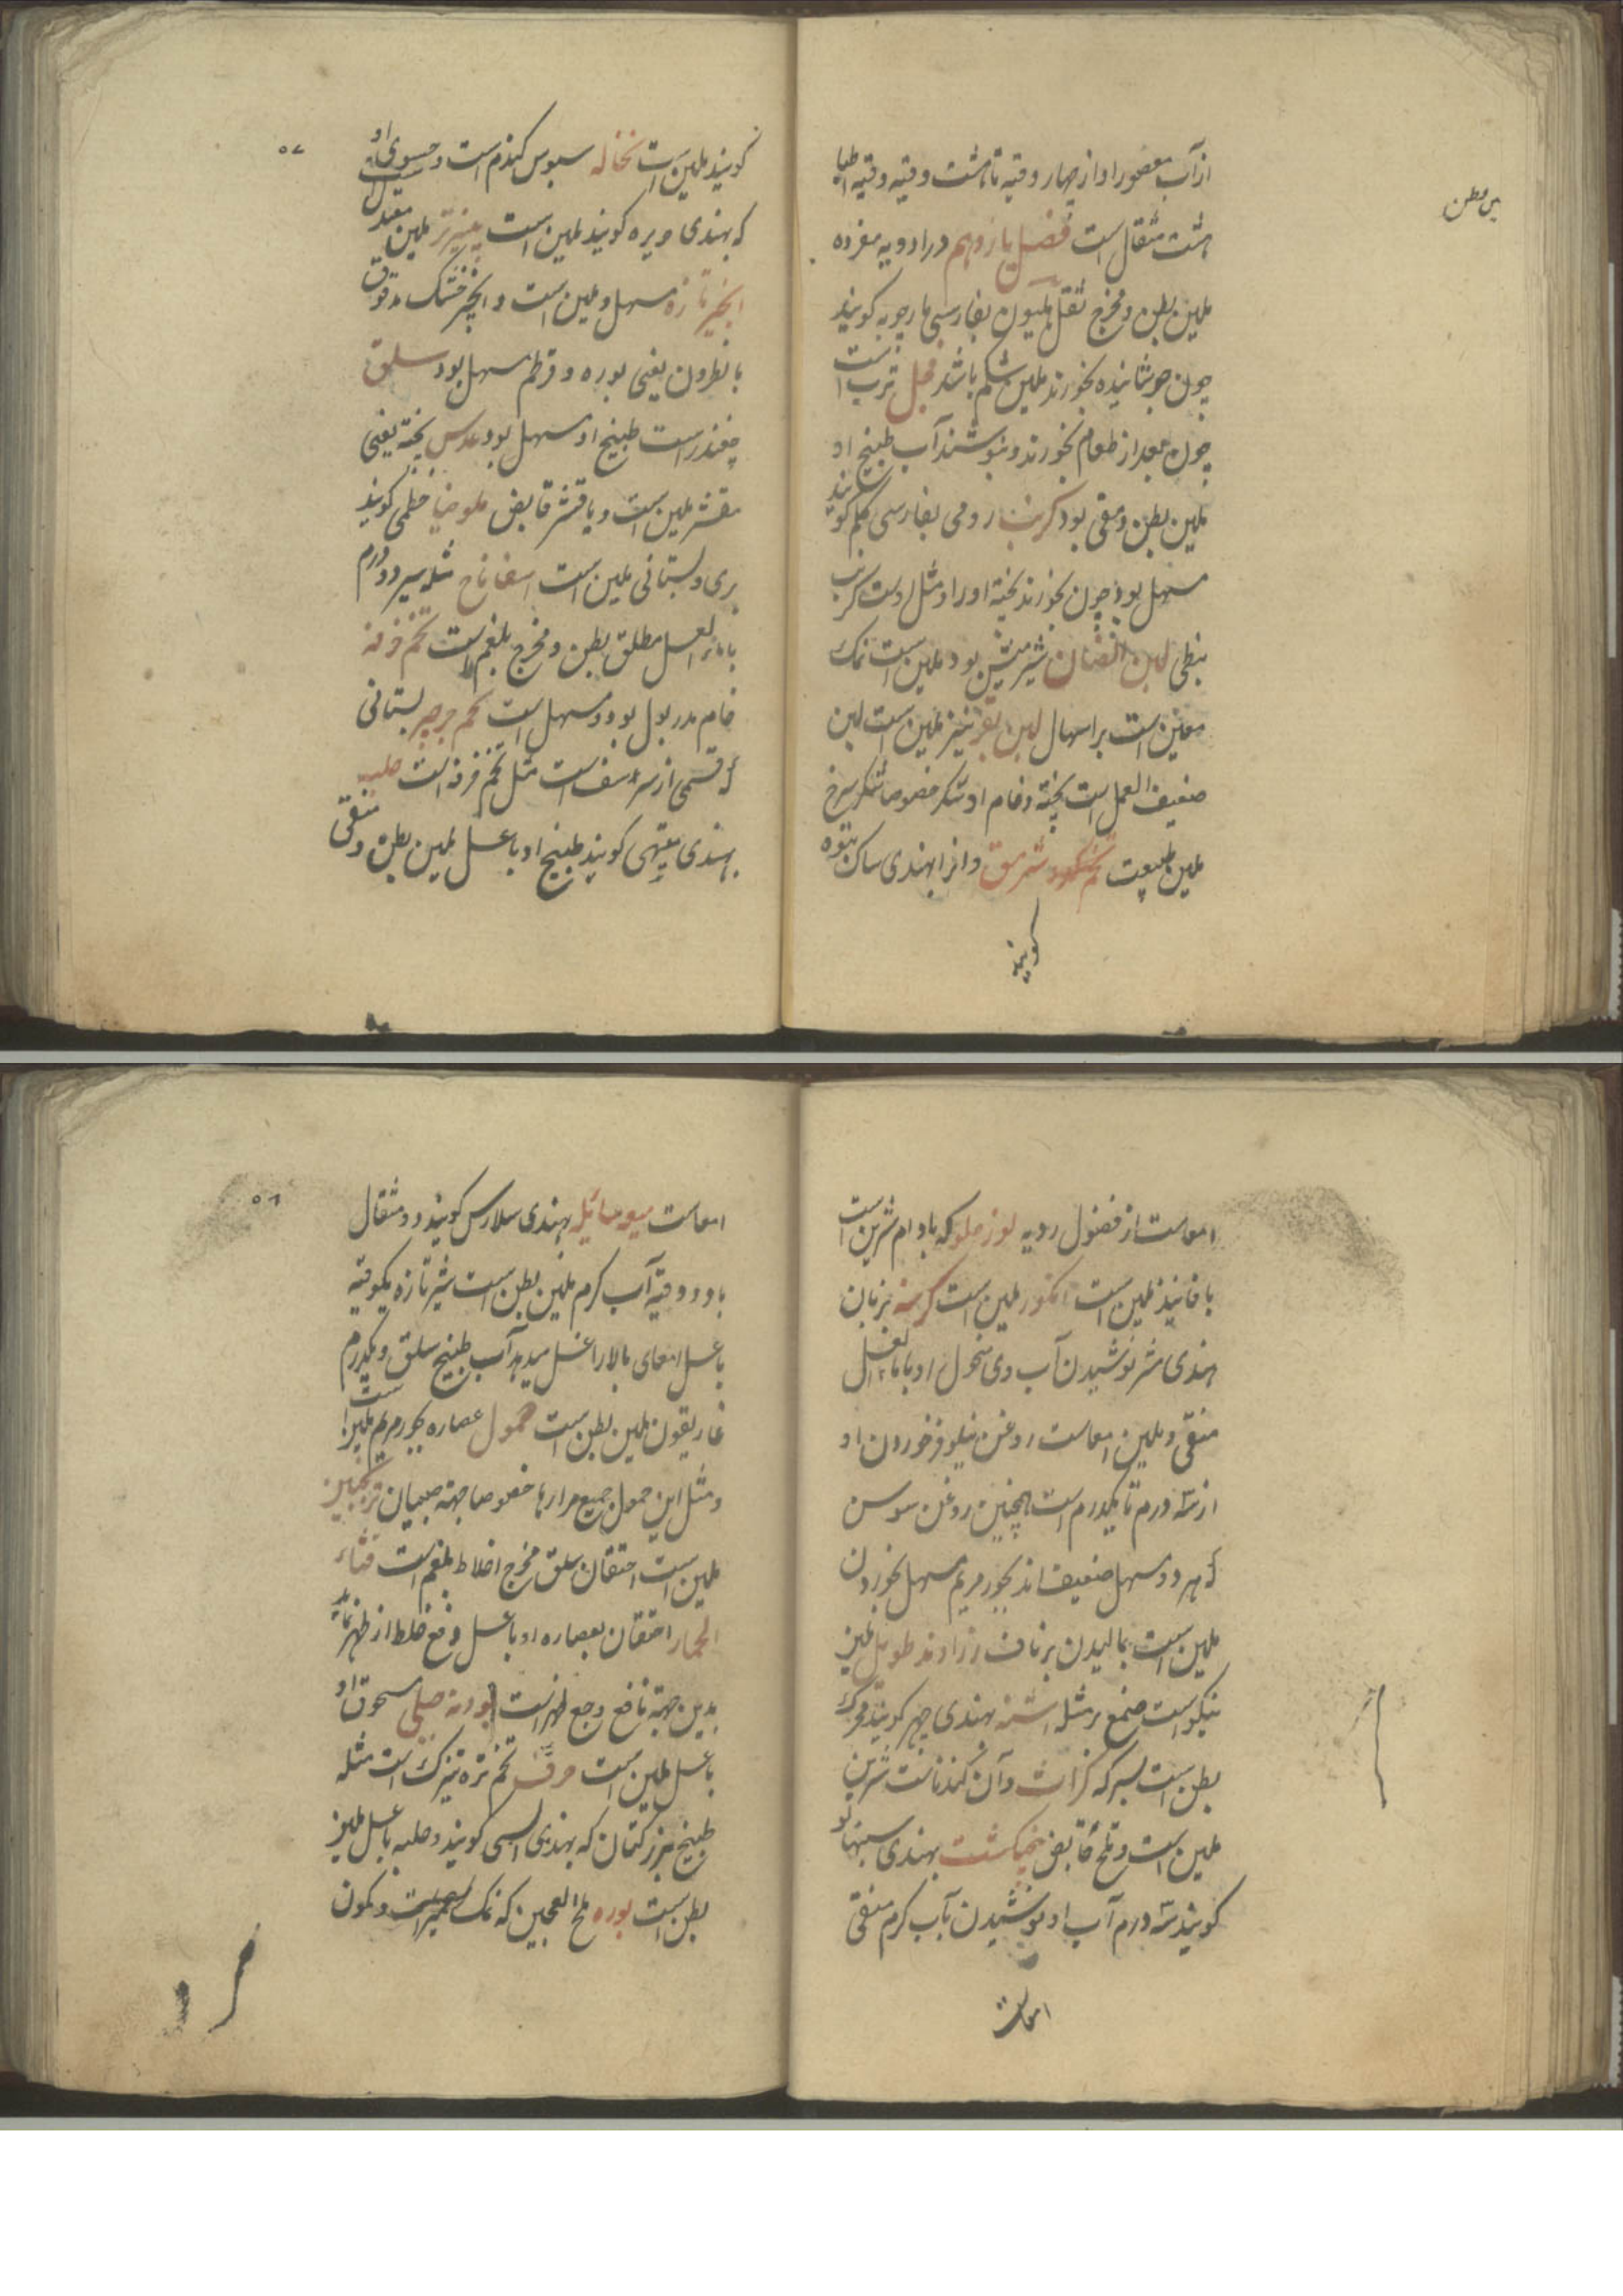 از آب معصور او از چهار وقیه تا هشت وقیه وقیه اطبا
هشت مثقال است فصل یازدهم در ادویه مفرده
ملین بطن و مخرج ثقل هلیون بفارسی مارچوبه کویند
چون جوشانیده بخورند ملین شکم باشد فجل ترب است
چون بعد از طعام بخورند و بنوشند آب طبیخ او
ملین بطن و مقی بود کرنب رومی بفارسی کلم کویند
مسهل بود چون بخورند پخته او را و مثل اوست کرنب
نبطی لبن الضان شیر میش بود ملین است نمک
معین است بر اسهال لبن بقر نیز ملین است لبن
ضعیف العمل است پخته و خام او شکر خصوصا شکر سرخ
ملین طبیعت تخم سرمق و انرا بهندی ساک بتوه
کویند
کویند ملین است نخاله سبوس کندم است و حسوی او
که بهندی حریره کویند ملین است پنیر تر ملین معتدل
انجیر تازه مسهل و ملین است و انجیر خشک مدقوق
با نطرون یعنی بوره و قرطم مسهل بود سلق
چغندر است طبیخ او مسهل بود عدس پخته یعنی
مقشر ملین است و با قشر قابض ملوخیا خطمی کویند
بری و بستانی ملین است اسفاناخ مثله سیر دو درم
با ماء العسل مطلق بطن و مخرج بلغم است تخم خرفه
خام مدر بول بود و مسهل است تخم جرجیر بستانی
که قسمی از سرسف است مثل تخم خرفه است حلبه
بهندی میتهی کویند طبیخ او با عسل ملین بطن و منقی
۵۷
امعاست از فضول ردیه لوز حلو که بادام شرین است
با فانیذ ملین است انکور ملین است کرسنه بزبان
هندی متر نوشیدن آب وی منحول او با ماء العسل
منقی و ملین امعاست روغن نیلوفر خوردن او
از سه درم تا یکدرم است همچنین روغن سوسن
که هر دو مسهل ضعیف اند بخور مریم مسهل بخوردن
ملین است بمالیدن بر ناف زراوند طویل ملین
نیکو است صمغ بر مثله اشنه بهندی چهر کویند محرک
بطن است بسرکه کراث و آن کندناست شرین
ملین است و تلخ قابض پنجنکشت بهندی سنبهالو
کویند سه درم آب او نوشیدن بآب کرم منقی
امعاست
امعاست میعه سائله بهندی سلارس کویند دو مثقال
با دو وقیه آب کرم ملین بطن است شیر تازه یکوقیه
با عسل امعای بالا را غسل میدهد آب طبیخ سلق و یکدرم
غاریقون ملین بطن است حمول عصاره بخور مریم ملین است
و مثل این حمول جمیع مرارها خصوصا جهة صبیان ترنجبین
ملین است احتقان سلق مخرج اخلاط بلغم است قثاء
الحمار احتقان بعصاره او با عسل دفع خلط از ظهر نماید
بدین جهة نافع وجع ظهر است پودنه جبلی مسحوق او
با عسل ملین است حرف تخم تره تیزک است مثله
طبیخ بزر کتان که بهندی السی کویند و حلبه با عسل ملین
بطن است بوره ملح العجین که نمک خمیر است و کمون